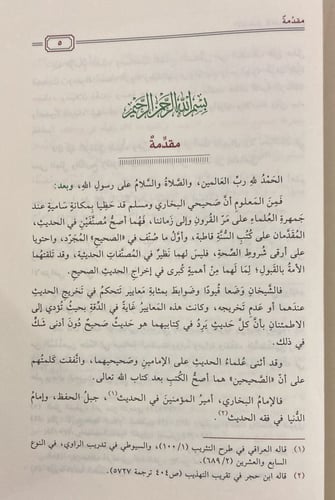 مقدّمةٌ
٥
بِسْمِ اللَّهِ الرَّحْمَنِ الرَّحِيمِ
مقدِّمةٌ
الحَمْدُ للهِ ربِّ العَالمين، والصَّلاةُ والسَّلامُ على رسولِ اللهِ، وبعد:
فَمِنَ المعلومِ أنَّ صَحيحي البخاري ومسلم قد حَظِيا بمكانةٍ ساميةٍ عند
جَمهرةِ العُلماءِ على مَرِّ القرونِ وإلى زمانتا، فَهُما أصحُّ مصنَّفَيْنِ في الحديثِ،
المُقدَّمان على كُتُبِ السنَّةِ قاطبة، وأوَّلُ ما صُنف في «الصحيحِ» المُجرَّد، واحتويا
على أرقى شُروطِ الصحَّةِ، فليسَ لهما نَظيرٌ في المصنّفاتِ الحديثية، وقد تلقَّتهُما
الأمةُ بالقَبولِ؛ لِمَا لَهما مِن أهميةٍ كُبرى في إخراجِ الحديثِ الصحيحِ.
فالشَّيخانِ وَضَعا قُيودًا وضَوابطَ بمثابةِ مَعاييرَ تَتحكمُ في تَخريجِ الحديثِ
عندَهما أو عَدمِ تَخريجه، وكانت هذه المَعاييرُ غايةً في الدقَّةِ بحيثُ تُؤدي إلى
الاطمئنانِ بأنَّ كلَّ حَديثٍ يَرِدُ في كِتابيهما هو حَديثٌ صَحيحٌ دُونَ أدنى شَكٍّ
في ذلك.
وقد أثنى عُلماءُ الحديثِ على الإمامينِ وصَحيحيهما، واتَّفقت كَلمتُهم
على أنَّ «الصَّحيحين» هما أصحُّ الكُتبِ بعد كتابِ الله تعالى.
فالإمامُ البخاري، أميرُ المؤمنينَ في الحديثِ(١)، جبلُ الحفظِ، وإمامُ
الدُّنيا في فقهِ الحديث(٢).
(١) قاله العراقي في طرح التثريب (١٠٠/١)، والسيوطي في تدريب الراوي، في النوع
السابع والعشرين (٦٨٩/٢).
(٢) قاله ابن حجر في تقريب التهذيب (ص٤٠٤ ترجمة ٥٧٢٧).